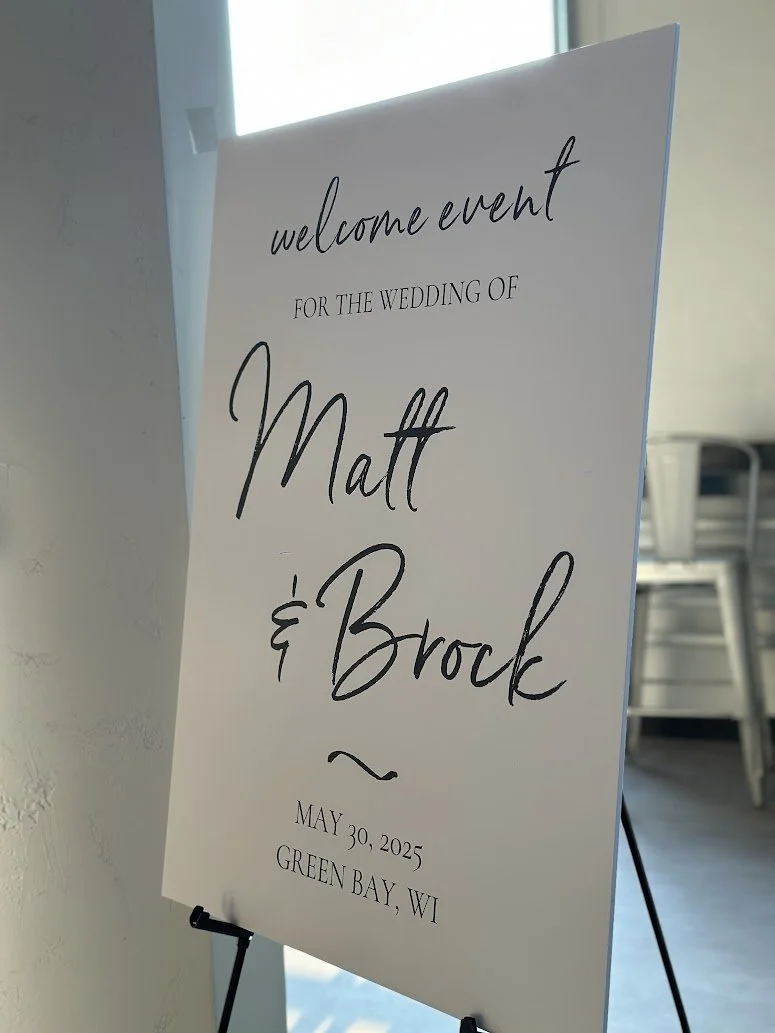 welcome event
FOR THE WEDDING OF
Matt
& Brock
~
MAY 30, 2025
GREEN BAY, WI